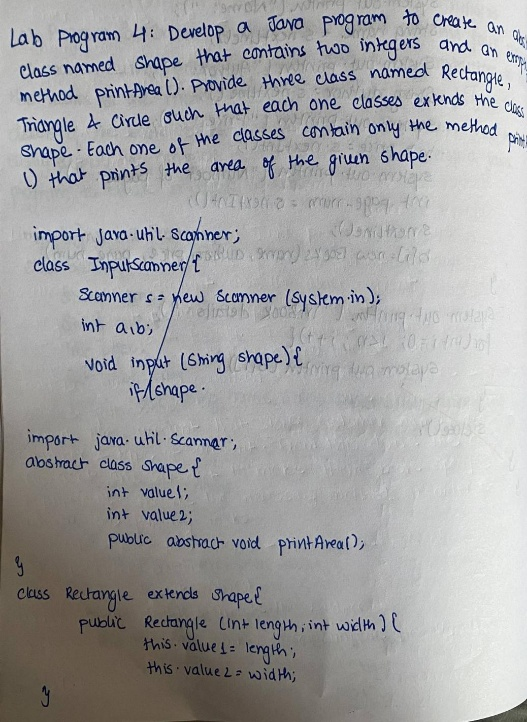 Lab Program 4: Develop a Java program to create an abs
class named shape that contains two integers and an empt
method printArea(). Provide three class named Rectangle,
Triangle & Circle such that each one classes extends the class
Shape. Each one of the classes contain only the method print
() that prints the area of the given shape.
import java.util.Scanner;
class InputScanner {
Scanner s = new Scanner (System.in);
int a,b;
void input (String shape) {
if (shape.
import java.util.Scanner;
abstract class Shape {
int value1;
int value2;
public abstract void printArea();
}
class Rectangle extends Shape {
public Rectangle (int length, int width) {
this.value1 = length;
this.value2 = width;
}